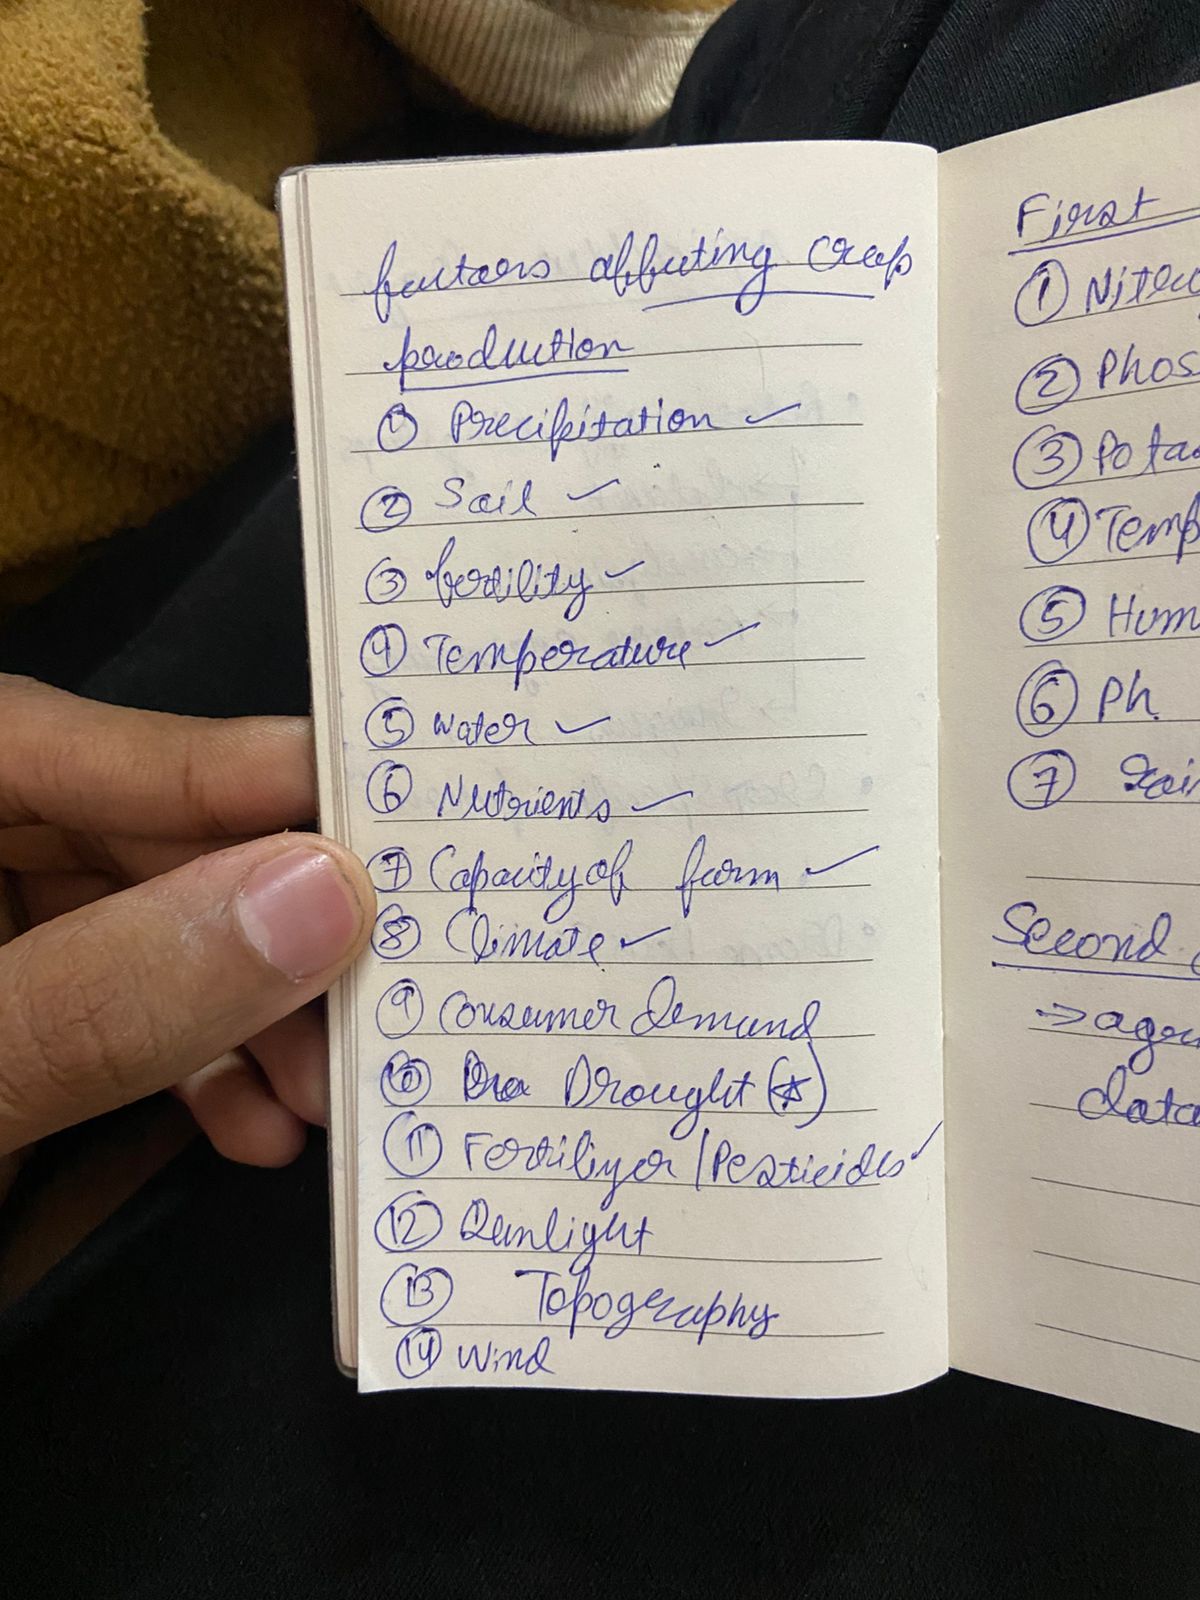 factors affecting crop
production
① Precipitation ✓
② Soil ✓
③ fertility ✓
④ Temperature ✓
⑤ Water ✓
⑥ Nutrients ✓
⑦ Capacity of farm ✓
⑧ Climate ✓
⑨ Consumer Demand
⑩ Drought (☆)
⑪ Fertilizer / Pesticides ✓
⑫ Sunlight
⑬ Topography
⑭ Wind
First
①
② Phos
③ Pota
④ Temp
⑤ Hum
⑥ Ph
⑦
Second
→
data